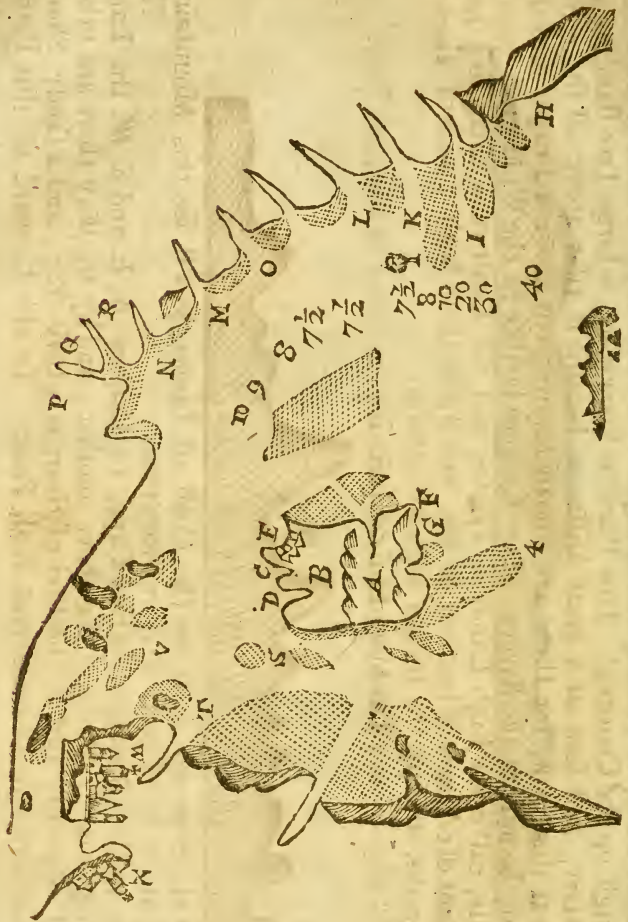 P
Q
R
N
M
O
L
K
I
H
10
9
8
7½
7½
7½
8
10
20
30
40
D
C
E
B
A
G
F
4
S
V
T
W
X